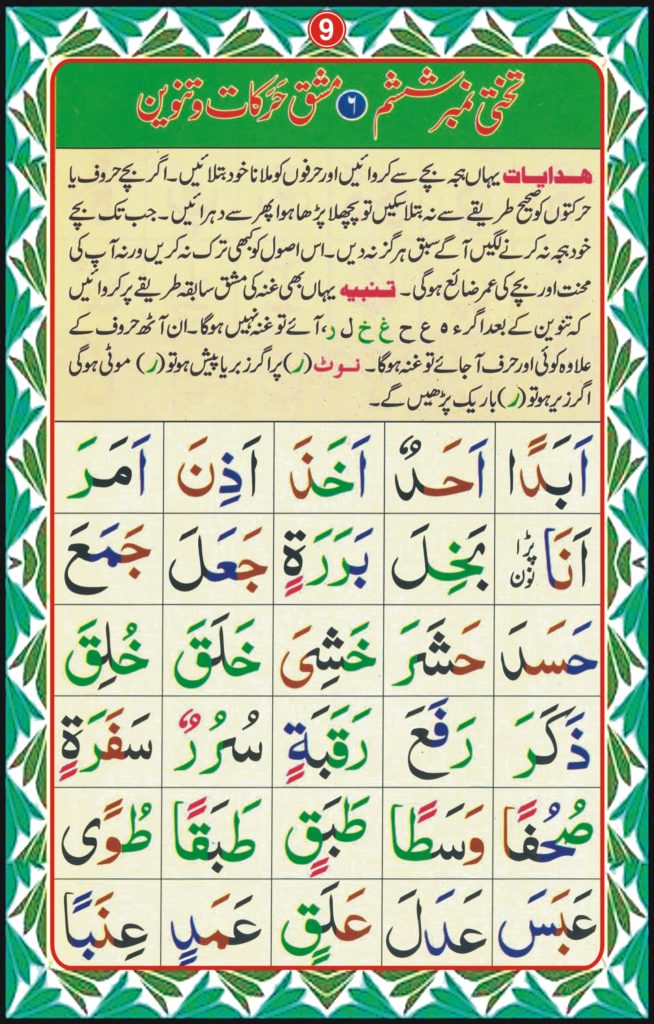 9
تختی نمبر ششم ۶ مشق حَرَکات و تنوین
ھدایات یہاں ہجہ بچے سے کروائیں اور حرفوں کو ملانا خود بتلائیں۔ اگر بچے حروف یا
حرکتوں کو صحیح طریقے سے نہ بتلا سکیں تو پچھلا پڑھا ہوا پھر سے دہرائیں۔ جب تک بچے
خود ہجہ نہ کرنے لگیں آگے سبق ہرگز نہ دیں۔ اس اصول کو کبھی ترک نہ کریں ورنہ آپ کی
محنت اور بچے کی عمر ضائع ہوگی۔ تنبیہ یہاں بھی غنہ کی مشق سابقہ طریقے پر کروائیں
کہ تنوین کے بعد اگر ء ہ ع ح غ خ ل ر، آئے تو غنہ نہیں ہوگا۔ ان آٹھ حروف کے
علاوہ کوئی اور حرف آجائے تو غنہ ہوگا۔ نوٹ (ر) پر اگر زبر یا پیش ہو تو (ر) موٹی ہوگی
اگر زیر ہو تو (ر) باریک پڑھیں گے۔
اَبَدًا اَحَدٌ اَخَذَ اَذِنَ اَمَرَ
اَنَا پڑا نون بَخِلَ بَرَرَةٍ جَعَلَ جَمَعَ
حَسَدَ حَشَرَ خَشِیَ خَلَقَ خُلِقَ
ذَکَرَ رَفَعَ رَقَبَةٍ سُرُرٌ سَفَرَةٍ
صُحُفًا وَسَطًا طَبَقٍ طَبَقًا طُوًی
عَبَسَ عَدَلَ عَلَقٍ عَمَدٍ عِنَبًا